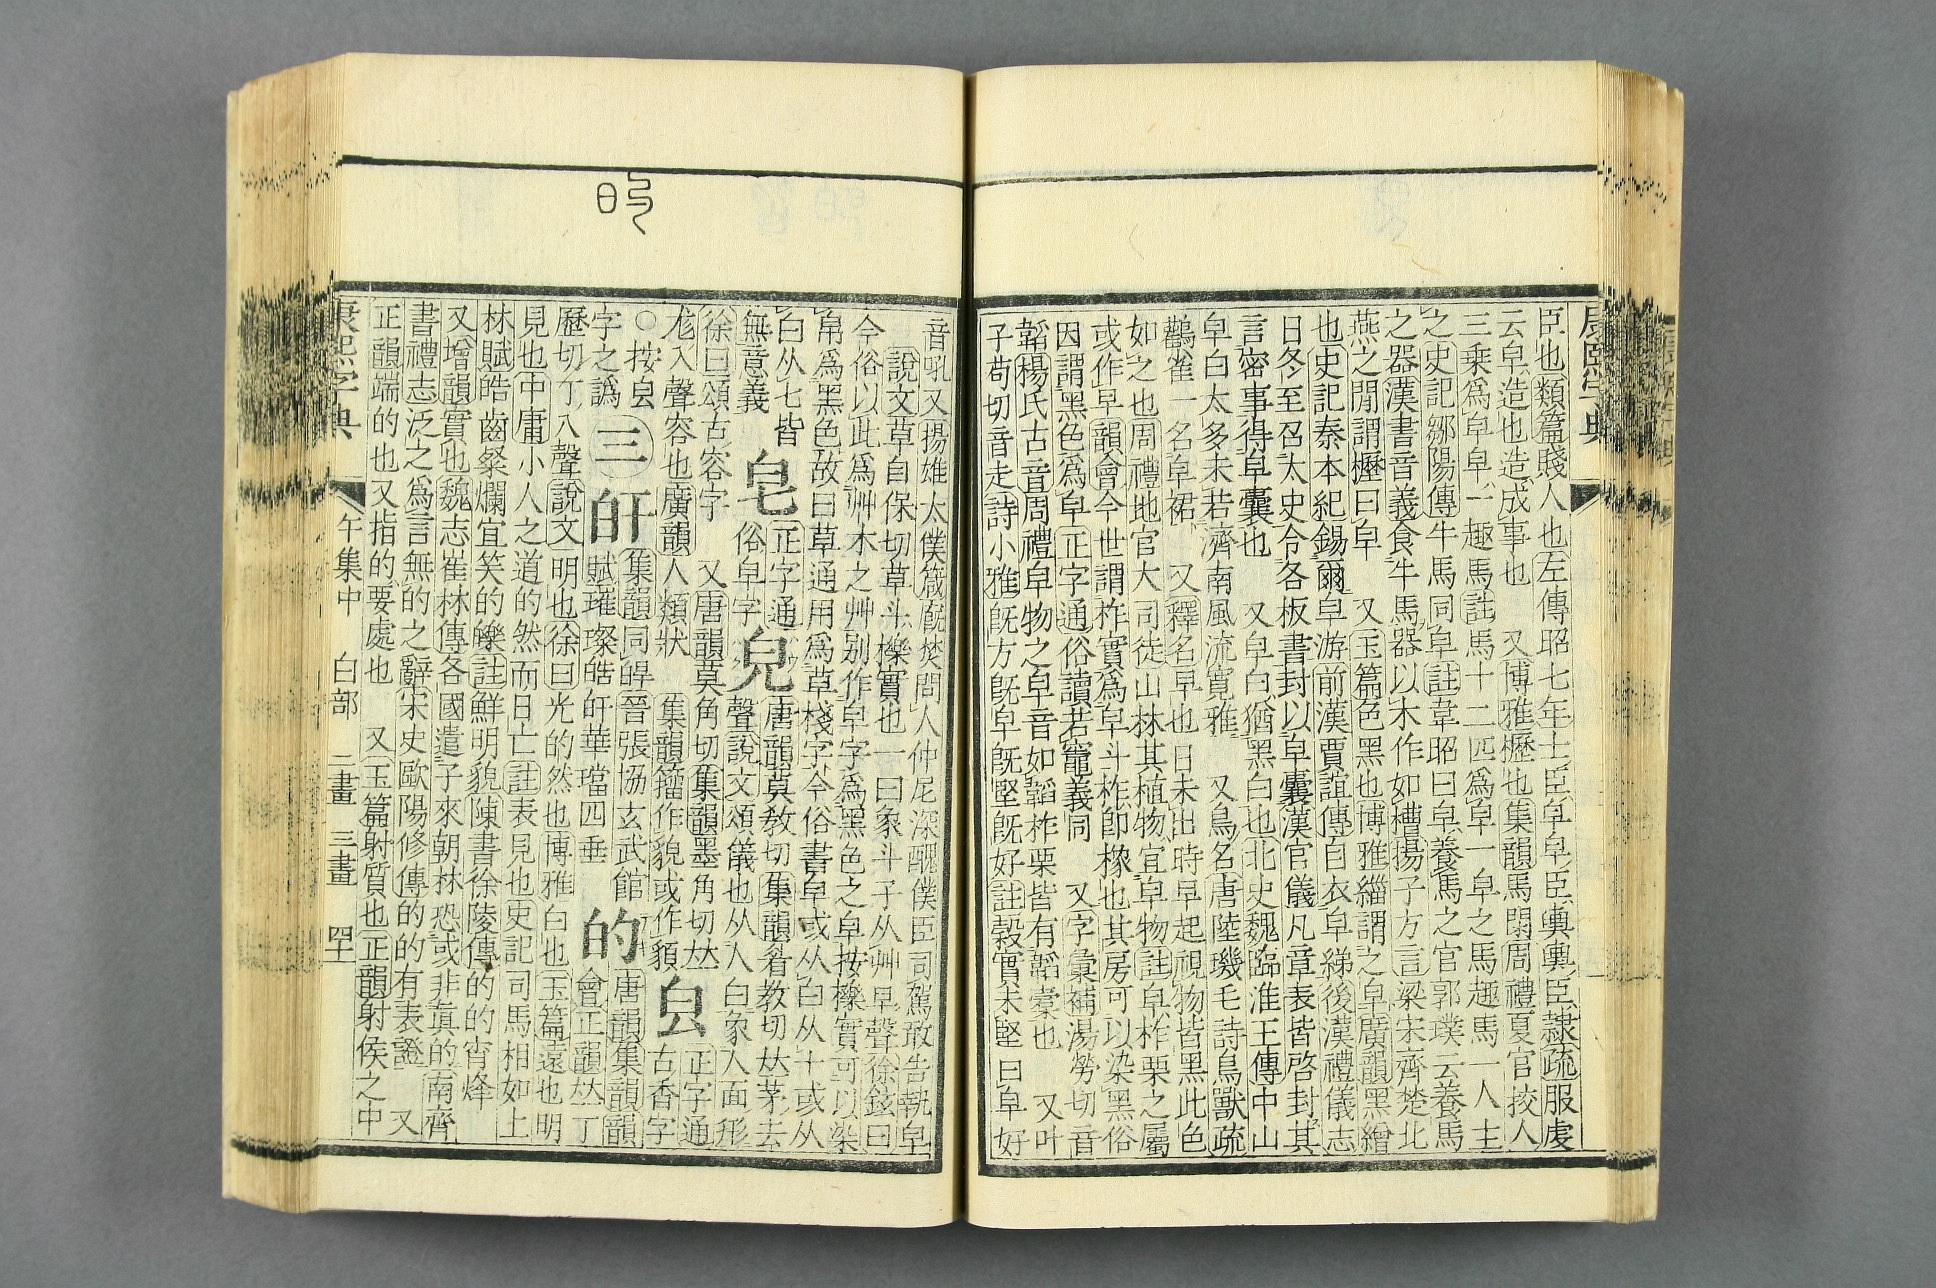 康熙字典
臣也類篇賤人也左傳昭七年士臣皁皁臣輿輿臣隸疏服虔
云皁造也造成事也 又博雅櫪也集韻馬閑周禮夏官挍人
三乘爲皁皁一趣馬註馬十二匹爲皁一皁之馬趣馬一人主
之史記鄒陽傳牛馬同皁註韋昭曰皁養馬之官郭璞云養馬
之器漢書音義食牛馬器以木作如槽揚子方言梁宋齊楚北
燕之閒謂櫪曰皁 又玉篇色黑也博雅緇謂之皁廣韻黑繒
也史記秦本紀錫爾皁游前漢賈誼傳白衣皁綈後漢禮儀志
日冬至召太史令各板書封以皁囊漢官儀凡章表皆啓封其
言密事得皁囊也 又皁白猶黑白也北史魏臨淮王傳中山
皁白太多未若濟南風流寬雅 又鳥名唐陸璣毛詩鳥獸疏
鸛雀一名皁裙 又釋名早也日未出時早起視物皆黑此色
如之也周禮地官大司徒山林其植物宜皁物註皁柞栗之屬
或作早韻會今世謂柞實爲皁斗柞卽橡也其房可以染黑俗
因謂黑色爲皁正字通俗讀若竈義同 又字彙補湯勞切音
韜楊氏古音周禮皁物之皁音如韜柞栗皆有韜彙也 又叶
子苟切音走詩小雅旣方旣皁旣堅旣好註穀實未堅曰皁好
音吼又揚雄太僕箴廐焚問人仲尼深醜僕臣司駕敢告執皁
說文草自保切草斗櫟實也一曰象斗子从艸早聲徐鉉曰
今俗以此爲艸木之艸别作皁字爲黑色之皁按櫟實可以染
帛爲黑色故曰草通用爲草棧字今俗書皁或从白从十或从
白从七皆
無意義
皂
正字通
俗皁字
皃
唐韻莫敎切集韻眉教切𠀤茅去
聲說文頌儀也从人白象人面形
徐曰頌古容字 又唐韻莫角切集韻墨角切𠀤
尨入聲容也廣韻人類狀 集韻籒作貌或作䫉
正字通
古香字
○按
字之譌
三
皯
集韻同皔晉張協玄武館
賦璀璨皓皯華璫四垂
的
唐韻集韻韻
會正韻𠀤丁
歷切丁入聲說文明也徐曰光的然也博雅白也玉篇遠也明
見也中庸小人之道的然而日亡註表見也史記司馬相如上
林賦皓齒粲爛宜笑的皪註鮮明貌陳書徐陵傳的的宵烽
又增韻實也魏志崔林傳各國遣子來朝林恐或非眞的南齊
書禮志泛之爲言無的之辭宋史歐陽修傳的的有表證 又
正韻端的也又指的要處也 又玉篇射質也正韻射侯之中
康熙字典 午集中 白部 二畫 三畫 四十